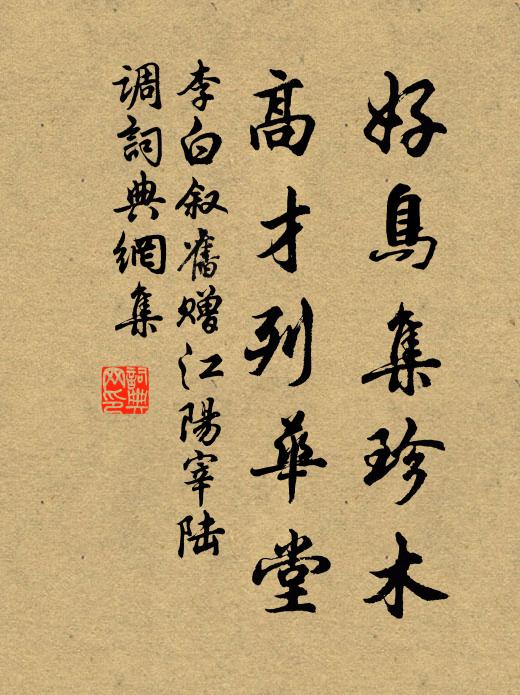 好鳥集珍木
高才列華堂
李白叙舊赠江陽宰陆
调詞典網集
詞典
网印